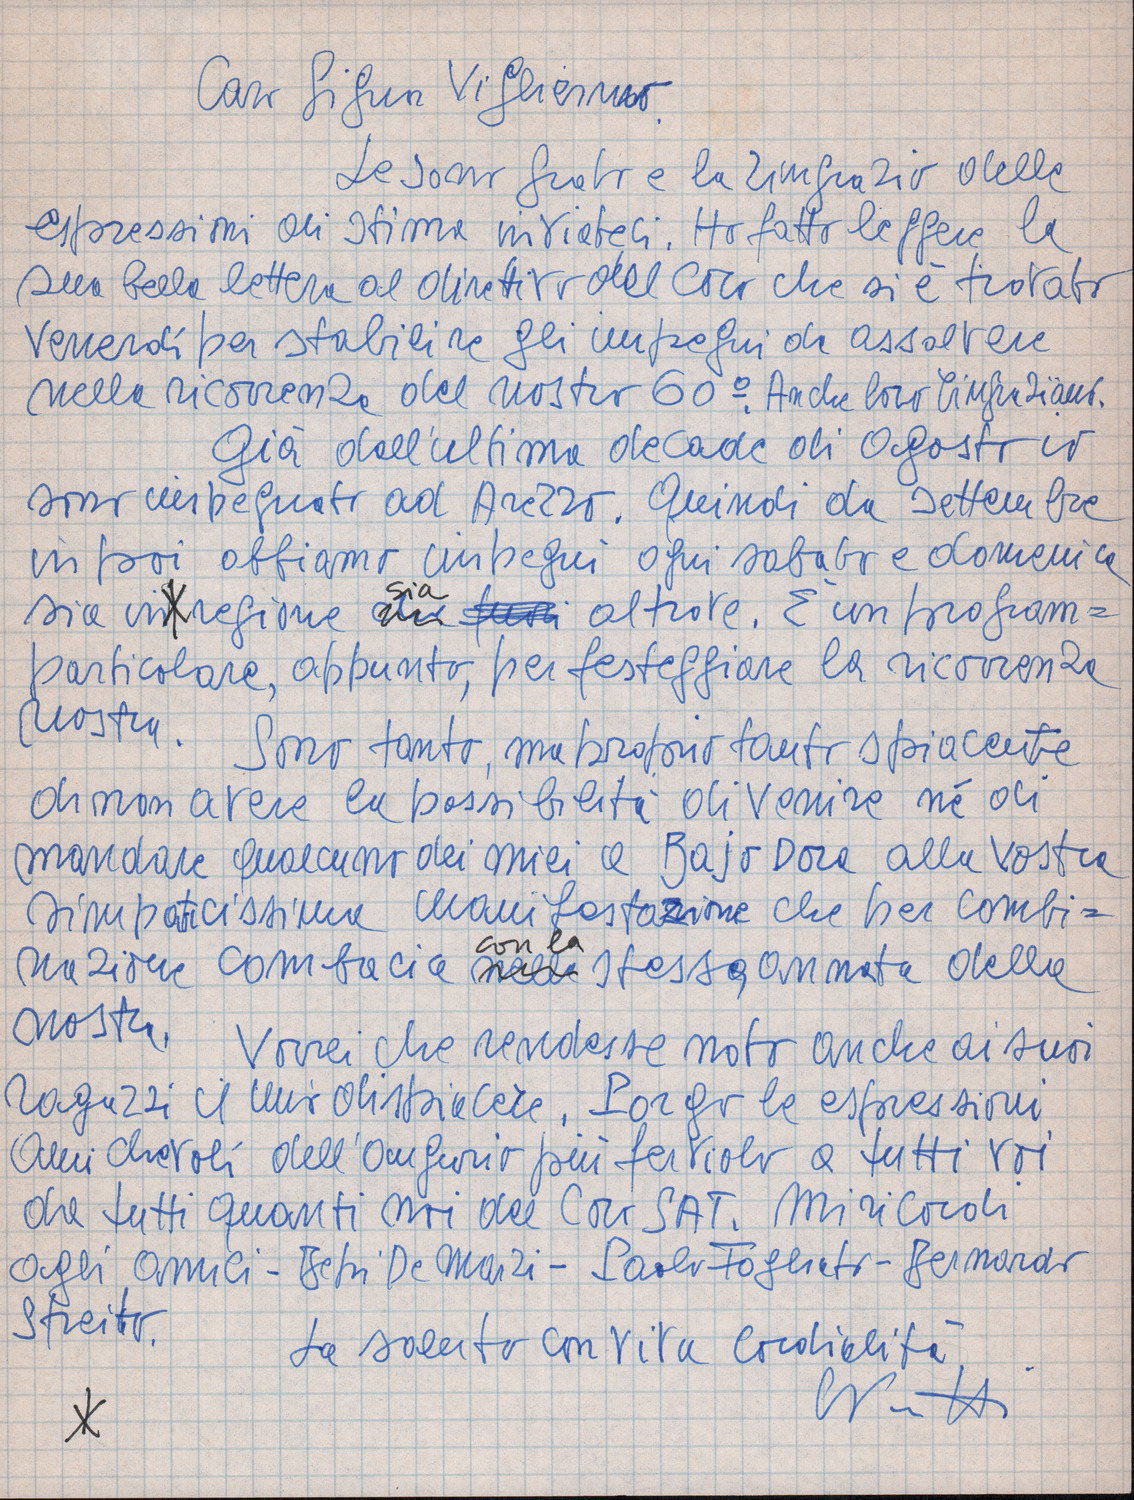 Caro Signor Vigliermo.
Le sono grato e la ringrazio delle
espressioni di stima inviateci. Ho fatto leggere la
sua bella lettera al direttivo del Coro che si è trovato
Venerdì per stabilire gli impegni da assolvere
nella ricorrenza del nostro 60º. Anche loro ringraziano.
Già dall'ultima decade di Agosto io
sono impegnato ad Arezzo. Quindi da Settembre
in poi abbiamo impegni ogni sabato e domenica
sia in regione sia altrove. È un program=
particolare, appunto, per festeggiare la ricorrenza
nostra.
Sono tanto, ma proprio tanto spiacente
di non avere la possibilità di venire né di
mandare qualcuno dei miei a Bajo Dora alla Vostra
simpaticissima manifestazione che per combi=
nazione combacia con la stessa annata della
nostra.
Vorrei che rendesse noto anche ai suoi
ragazzi il mio dispiacere. Porgo le espressioni
amichevoli dell'augurio più fervido a tutti voi
da tutti quanti noi del Coro SAT. Mi ricordi
agli amici - Bepi De Marzi - Paolo Fogliato - Bernardo
Streito.
La saluto con viva cordialità